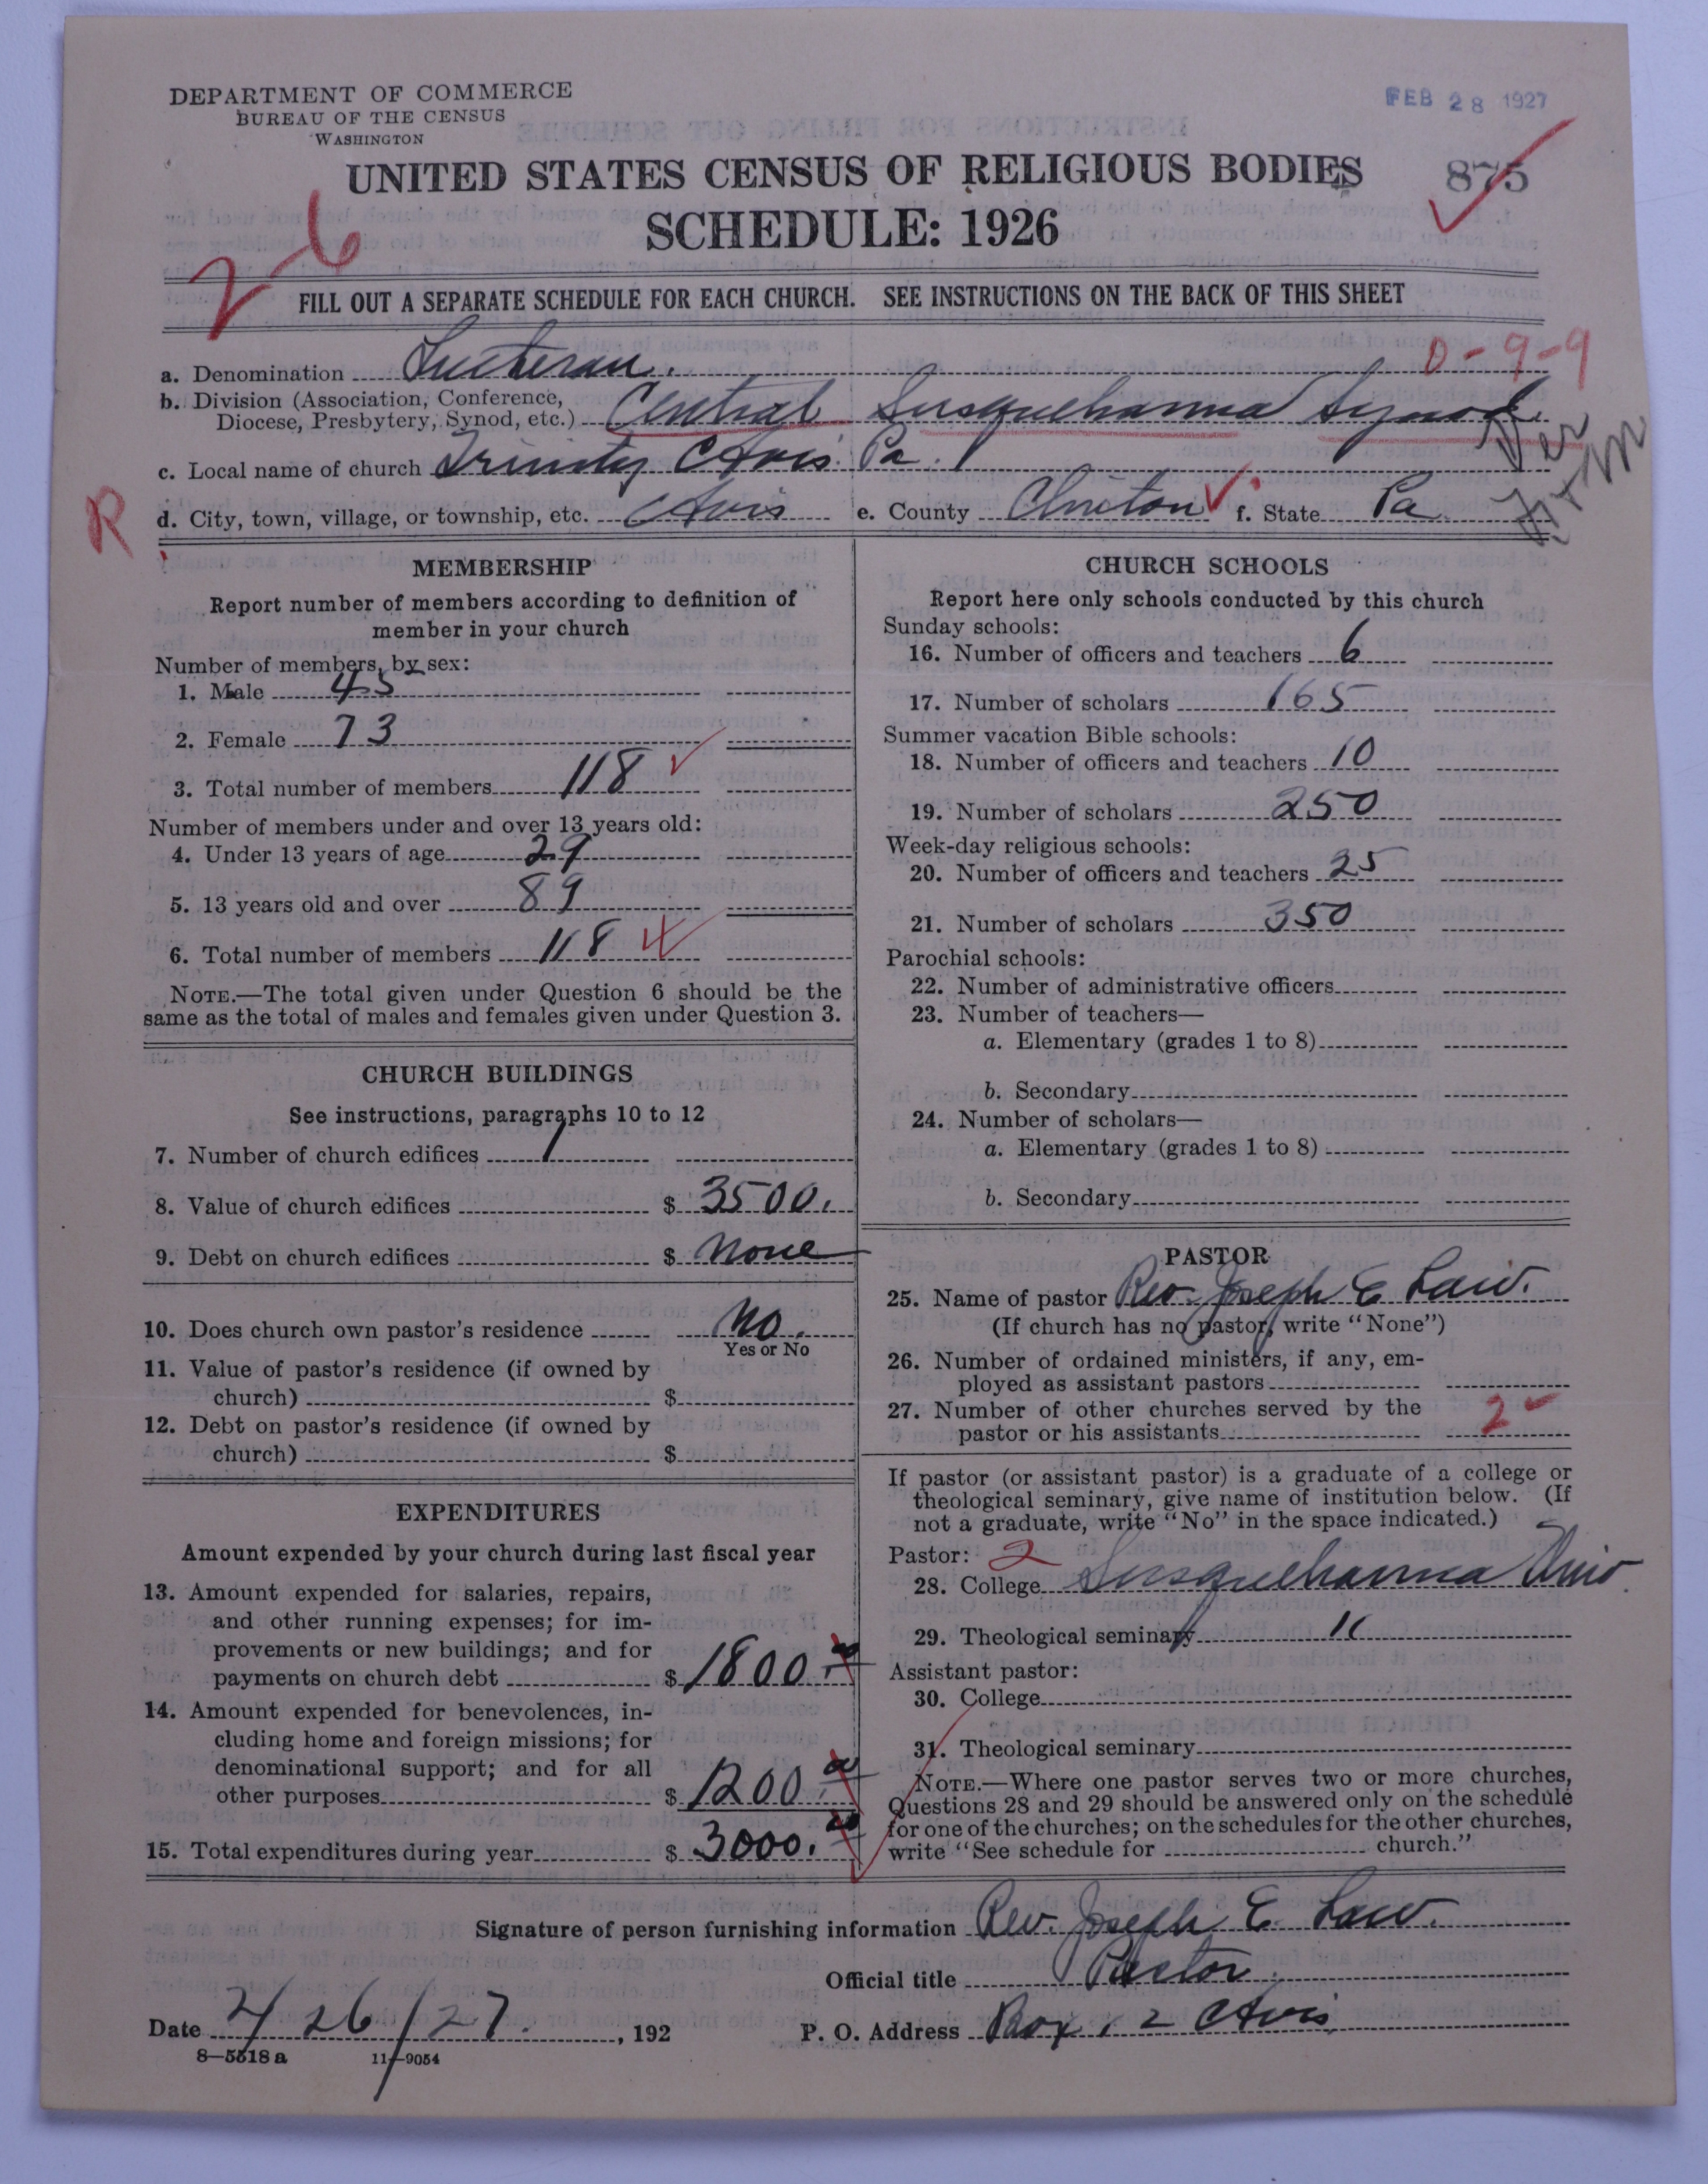 DEPARTMENT OF COMMERCE
BUREAU OF THE CENSUS
WASHINGTON
FEB 28 1927
UNITED STATES CENSUS OF RELIGIOUS BODIES
875
SCHEDULE: 1926
26
FILL OUT A SEPARATE SCHEDULE FOR EACH CHURCH. SEE INSTRUCTIONS ON THE BACK OF THIS SHEET
0-9-9
a. Denomination Lutheran.
b. Division (Association, Conference,
Diocese, Presbytery, Synod, etc.) Central Susquehanna Synod
c. Local name of church Trinity Avis Pa.
R
d. City, town, village, or township, etc. Avis e. County Clinton f. State Pa
MEMBERSHIP
Report number of members according to definition of
member in your church
Number of members, by sex:
1. Male 45
2. Female 73
3. Total number of members 118
Number of members under and over 13 years old:
4. Under 13 years of age 29
5. 13 years old and over 89
6. Total number of members 118
NOTE.—The total given under Question 6 should be the
same as the total of males and females given under Question 3.
CHURCH BUILDINGS
See instructions, paragraphs 10 to 12
7. Number of church edifices 1
8. Value of church edifices $ 3500.
9. Debt on church edifices $ None
10. Does church own pastor's residence No.
Yes or No
11. Value of pastor's residence (if owned by
church) $
12. Debt on pastor's residence (if owned by
church) $
EXPENDITURES
Amount expended by your church during last fiscal year
13. Amount expended for salaries, repairs,
and other running expenses; for im-
provements or new buildings; and for
payments on church debt $ 1800.00
14. Amount expended for benevolences, in-
cluding home and foreign missions; for
denominational support; and for all
other purposes $ 1200.00
15. Total expenditures during year $ 3000.00
CHURCH SCHOOLS
Report here only schools conducted by this church
Sunday schools:
16. Number of officers and teachers 6
17. Number of scholars 165
Summer vacation Bible schools:
18. Number of officers and teachers 10
19. Number of scholars 250
Week-day religious schools:
20. Number of officers and teachers 25
21. Number of scholars 350
Parochial schools:
22. Number of administrative officers
23. Number of teachers—
a. Elementary (grades 1 to 8)
b. Secondary
24. Number of scholars—
a. Elementary (grades 1 to 8)
b. Secondary
PASTOR
25. Name of pastor Rev. Joseph E Law.
(If church has no pastor, write "None")
26. Number of ordained ministers, if any, em-
ployed as assistant pastors
27. Number of other churches served by the
pastor or his assistants 2
If pastor (or assistant pastor) is a graduate of a college or
theological seminary, give name of institution below. (If
not a graduate, write "No" in the space indicated.)
Pastor: 2
28. College Susquehanna Univ.
29. Theological seminary "
Assistant pastor:
30. College
31. Theological seminary
NOTE.—Where one pastor serves two or more churches,
Questions 28 and 29 should be answered only on the schedule
for one of the churches; on the schedules for the other churches,
write "See schedule for church."
Signature of person furnishing information Rev. Joseph E. Law.
Official title Pastor
Date 2/26/27. , 192
P. O. Address Box 12 Avis
8—5518a 11—9054